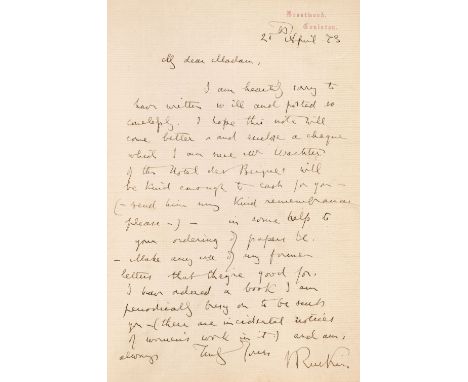 Brantwood,
Coniston,
21st April 83
My dear Madam,
I am heartily sorry to
have written so ill and posted so
carelessly. I hope this note will
come better and enclose a cheque
which I am sure Mr Wachter
of the Hotel des Bergues will
be kind enough to cash for you –
(– send him my kind remembrances
please –) – in some help to
your ordering of papers &c.
– Make any use of my former
letters that they're good for.
I have ordered a book I am
periodically busy on to be sent
you – (there are incidental notices
of women's work in it) and am,
always Truly Yours
J Ruskin